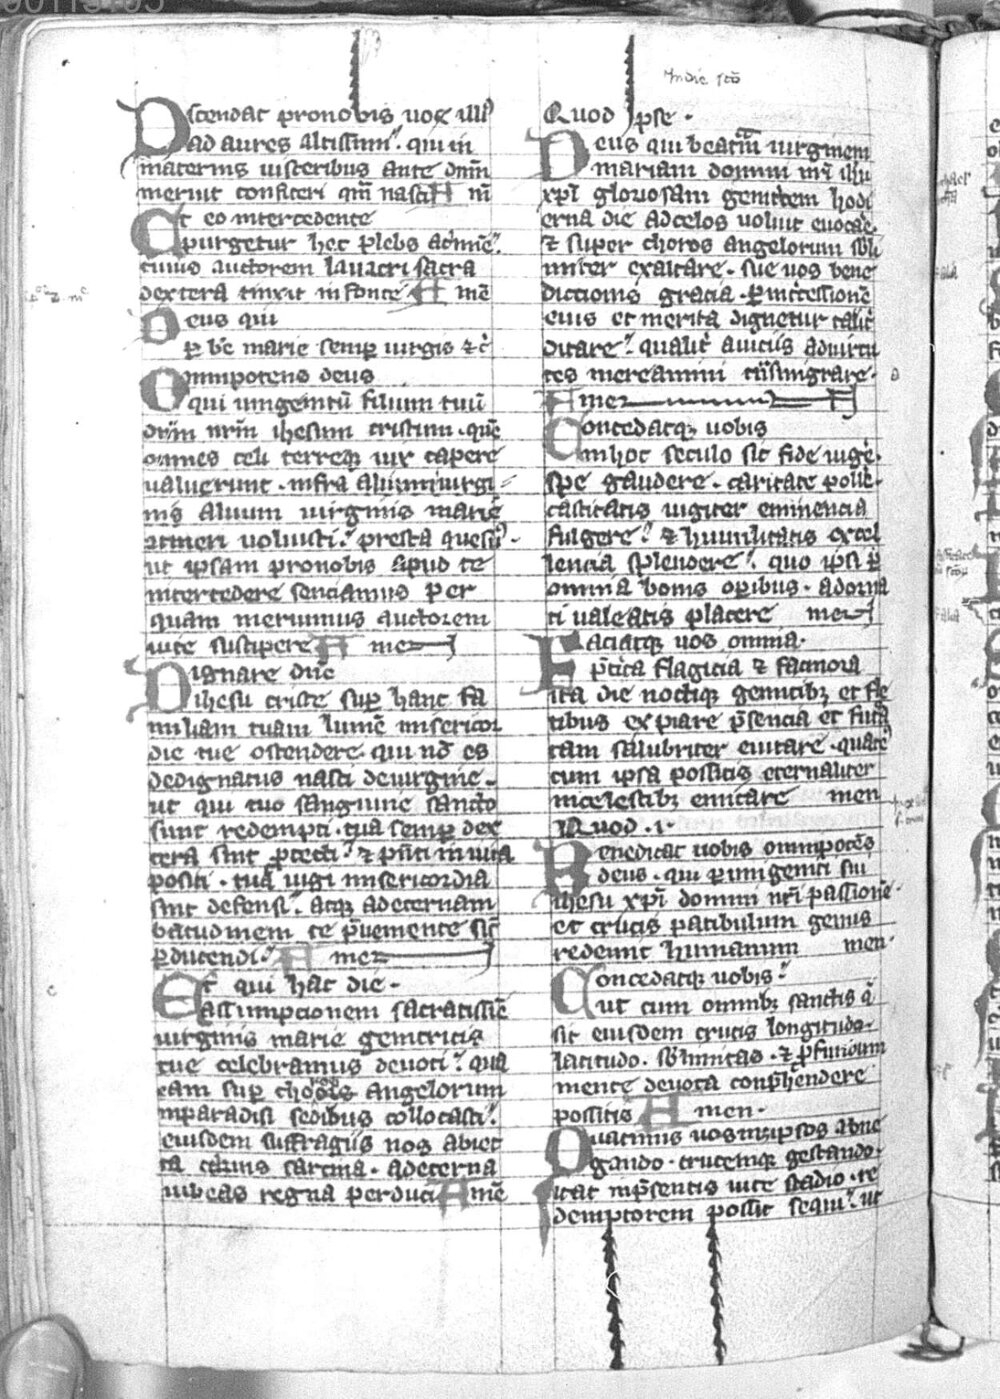 Indic. sco
Ostendat pronobis uoce illi
ad aures altissimi. qui in
maternis uisceribus ante dnm
meruit confiteri qm nasci A m
Et eo intercedente
purgetur hec plebs a crimine.
cuius auctorem lauacri sacra
dextera tinxit in fonte A me
Deus qui
p be marie semp uirgis &c
Omnipotens deus
qui unigenitu filium tuu
dnm nrm ihesum cristum. que
omnes celi terreq; uix capere
ualuerunt. infra
nis aluum uirginis marie
uoluisti. presta
ut ipsam pronobis apud te
intercedere senciamus per
quam meruimus auctorem
uite suscipere A me
Dignare dne
ihesu criste sup hanc fa
miliam tuam lume misericor
die tue ostendere. qui no es
dedignatus nasci deuirgine.
ut qui tuo sanguine sancto
sunt redempti. tua semp dex
tera sint ptecti. & pnti inuita
positi. tua uigi misericordia
sint defensi. atq; adeternam
te pueniente sic
pducendi. A me
Et qui hac die.
assumpcionem sacratissie
uirginis marie genitricis
tue celebramus deuoti. qua
eam sup choros angelorum
inparadisi sedibus collocasti.
eiusdem suffragiis nos abiec
ta sarcina. adeterna
iubeas regna perduci A me
Quod ipse.
Deus qui beatam uirginem
mariam domini nri ihu
xpi gloriosam genitricem hodi
erna die adcelos uoluit euocare.
& super choros angelorum sbli
miter exaltare. sue uos bene
diccionis gracia. p intcessione
eius et merita dignetur
ditare. qualit auiciis aduirtu
tes mereamini tnsmigrare.
Ame A
Concedatq; uobis
inhoc seculo sic fide uige.
spe gaudere. caritate polle.
castitatis iugiter eminencia
fulgere. & humilitatis excel
lencia splendere. quo ipsi p
omnia bonis opibus. adorna
ti ualeatis placere me
Faciatq; uos omnia.
ptita flagicia & facinora
ita die noctuq; gemitib; et fle
tibus expiare psencia et futu
ram salubriter euitare. quate
cum ipsa possitis eternaliter
incelestib; emicare men
Quod .i.
Benedicat uobis omnipotes
deus. qui p unigeniti sui
ihesu xpi domini nri passione.
et crucis patibulum genus
redemit humanum men
Concedatq; uobis.
ut cum omnib; sanctis q
sit eiusdem crucis longitudo.
latitudo. sblimitas. & pfundum
mente deuota conphendere
possitis A men.
Quatinus uosmetipsos abne
gando. crucemq; gestando.
itat inpsentis uite stadio. re
demptorem possit sequi. ut